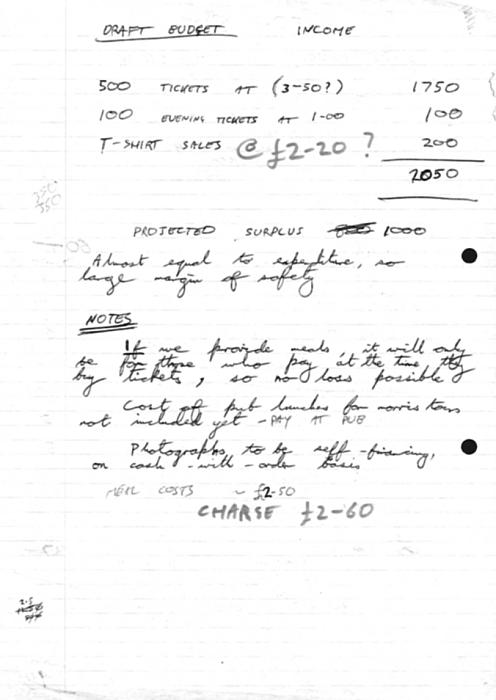 DRAFT BUDGET INCOME
500 TICKETS AT (3-50?) 1750
100 EVENING TICKETS AT 1-00 100
T-SHIRT SALES @ £2-20 ? 200
2050
PROJECTED SURPLUS 1000
Almost equal to expenditure, so
large margin of safety
NOTES
If we provide meals, it will only
be for those who pay at the time they
buy tickets, so no loss possible
Cost of pub lunches for morris tours
not included yet - PAY AT PUB
Photographs to be self-financing,
on cash-with-order basis
MEAL COSTS ~ £2-50
CHARSE £2-60